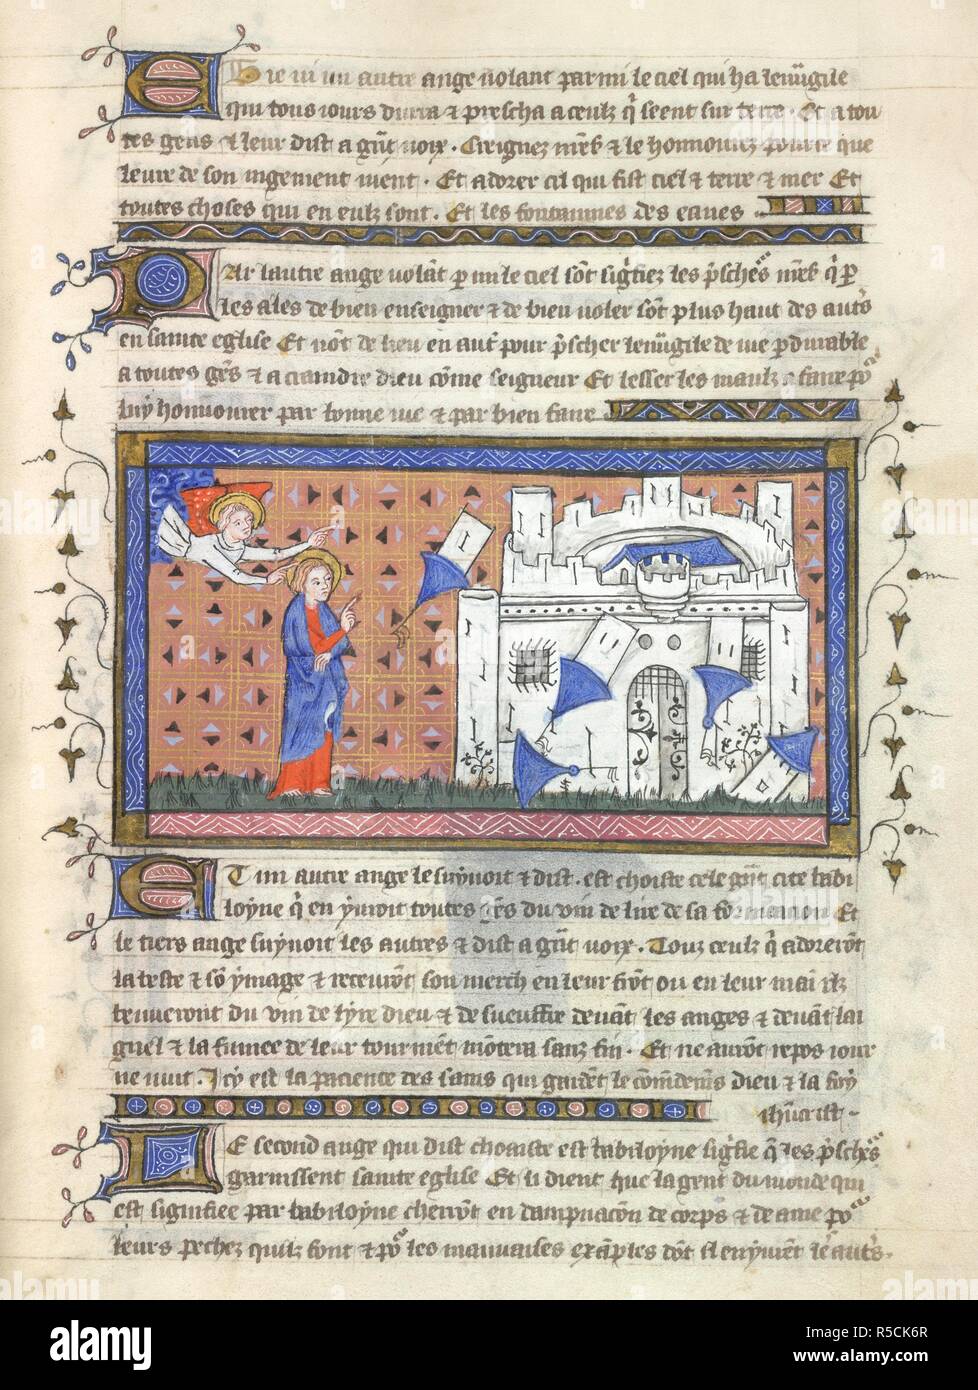 Et ie vi un autre ange volant parmi le ciel qui ha leuugile
qui tous iours durra & prescha a ceulz q̃ seent sur terre. Et a tou
tes gens & leur dist a gñt voix. Creignez nr̃e & le honnourez pour ce que
leure de son iugement vient. Et adorer cil qui fist ciel & terre & mer Et
toutes choses qui en eulz sont. Et les fontaines des eaues
Par lautre ange volãt p mi le ciel sõt sig̃fiez les p̃schẽs q̃ p
les ales de bien enseigner & de bien voler sõt plus haut des autr̃s
en sainte eglise Et võt de lieu en autr̃ pour p̃scher leuũgile de vie pdurable
a toutes gẽs & a craindre dieu cõme seigneur Et lesser les maulz a faire po
luy honnourer par bonne vie & par bien faire
Et un autre ange le suyuoit & dist. est choiste cele gñt cite babi
loyne q̃ en yuroit toutes gẽs du vin de lire de sa fornicacion Et
le tiers ange suyuoit les autres & dist a gñt voix. Touz ceulz q̃ adorerõt
la beste & sõ ymage & receurõt son merch en leur frõt ou en leur mai ilz
beuueront du vin de lyre dieu & de seuffre deuãt les anges & deuãt lai
gnel & la fumee de leur tourmẽt mõtera sanz fin. Et ne aurõt repos iour
ne nuit. Icy est la pacience des sains qui gardẽt le cõmdemẽs dieu & la foy
ihũcrist
Le second ange qui dist choiste est babiloyne sig̃fie q̃ les p̃schẽs
garnissent sainte eglise Et li dient que la gent du monde qui
est signifiee par babiloyne cherrõt en dampnaciõn de corps & de ame po
leurs pechez quilz font & po les mauuaises exãples dõt il enyurẽt les autr̃s.
alamy
Image ID: R5CK6R
www.alamy.com